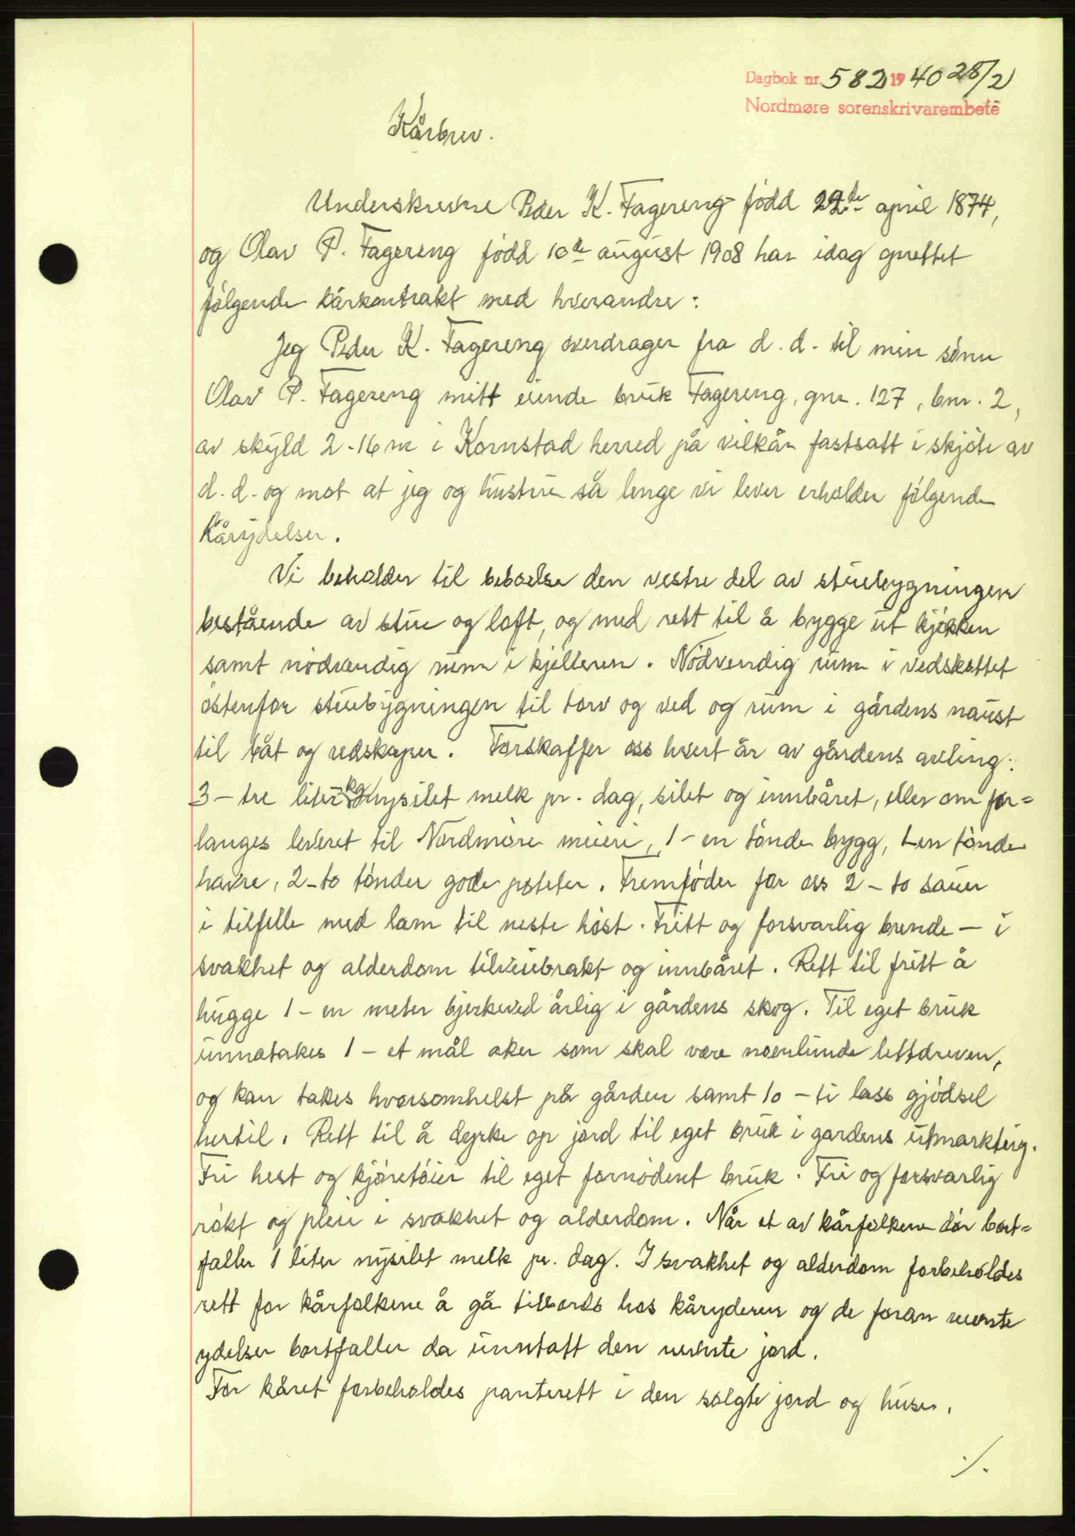 Dagbok nr. 582 1940 28/2
Nordmøre sorenskrivarembete
Kårbrev.
Underskrevne Peder K. Fagereng født 22de april 1874,
og Olav P. Fagereng född 10de august 1908 har idag oprettet
følgende kårkontrakt med hverandre:
Jeg Peder K. Fagereng overdrager fra d.d. til min sønn
Olav P. Fagereng mitt eiende bruk Fagereng, gnr. 127, bnr. 2,
av skyld 2.16 m i Kornstad herred på vilkår fastsatt i skjöte av
d.d. og mot at jeg og hustru så lenge vi lever erholder følgende
kårydelser.
Vi beholder til beboelse den vestre del av stuebygningen
bestående av stue og loft, og med rett til å bygge ut kjøkken
samt nödvendig rum i kjelleren. Nödvendig rum i vedskottet
östenfor stuebygningen til torv og ved og rum i gårdens naust
til båt og redskaper. Forskaffer oss hvert år av gårdens avling:
3 - tre liter kg nysilet melk pr. dag, silet og innbåret, eller om for=
langes leveret til Nordmöre meieri, 1 - en tönde bygg, 1-en tönde
havre, 2-to tönder gode poteter. Fremföder for oss 2 - to sauer
i tilfelle med lam til neste höst. Fritt og forsvarlig brende - i
svakhet og alderdom tilveiebrakt og innbåret. Rett til fritt å
hugge 1 - en meter bjerkeved årlig i gårdens skog. Til eget bruk
unnatakes 1 - et mål aker som skal være noenlunde lettdreven,
og kan takes hvorsomhelst på gården samt 10 - ti lass gjödsel
hertil. Rett til å dyrke op jord til eget bruk i gardens utmarkteig.
Fri hest og kjöretöier til eget fornödent bruk. Fri og forsvarlig
rökt og pleie i svakhet og alderdom. Når et av kårfolkene dör bort=
faller 1 liter nysilet melk pr. dag. I svakhet og alderdom forbeholdes
rett for kårfolkene å gå tilbords hos kåryderen og de foran nevnte
ydelser bortfaller da unntatt den nevnte jord.
For kåret forbeholdes panterett i den solgte jord og huser.
./.